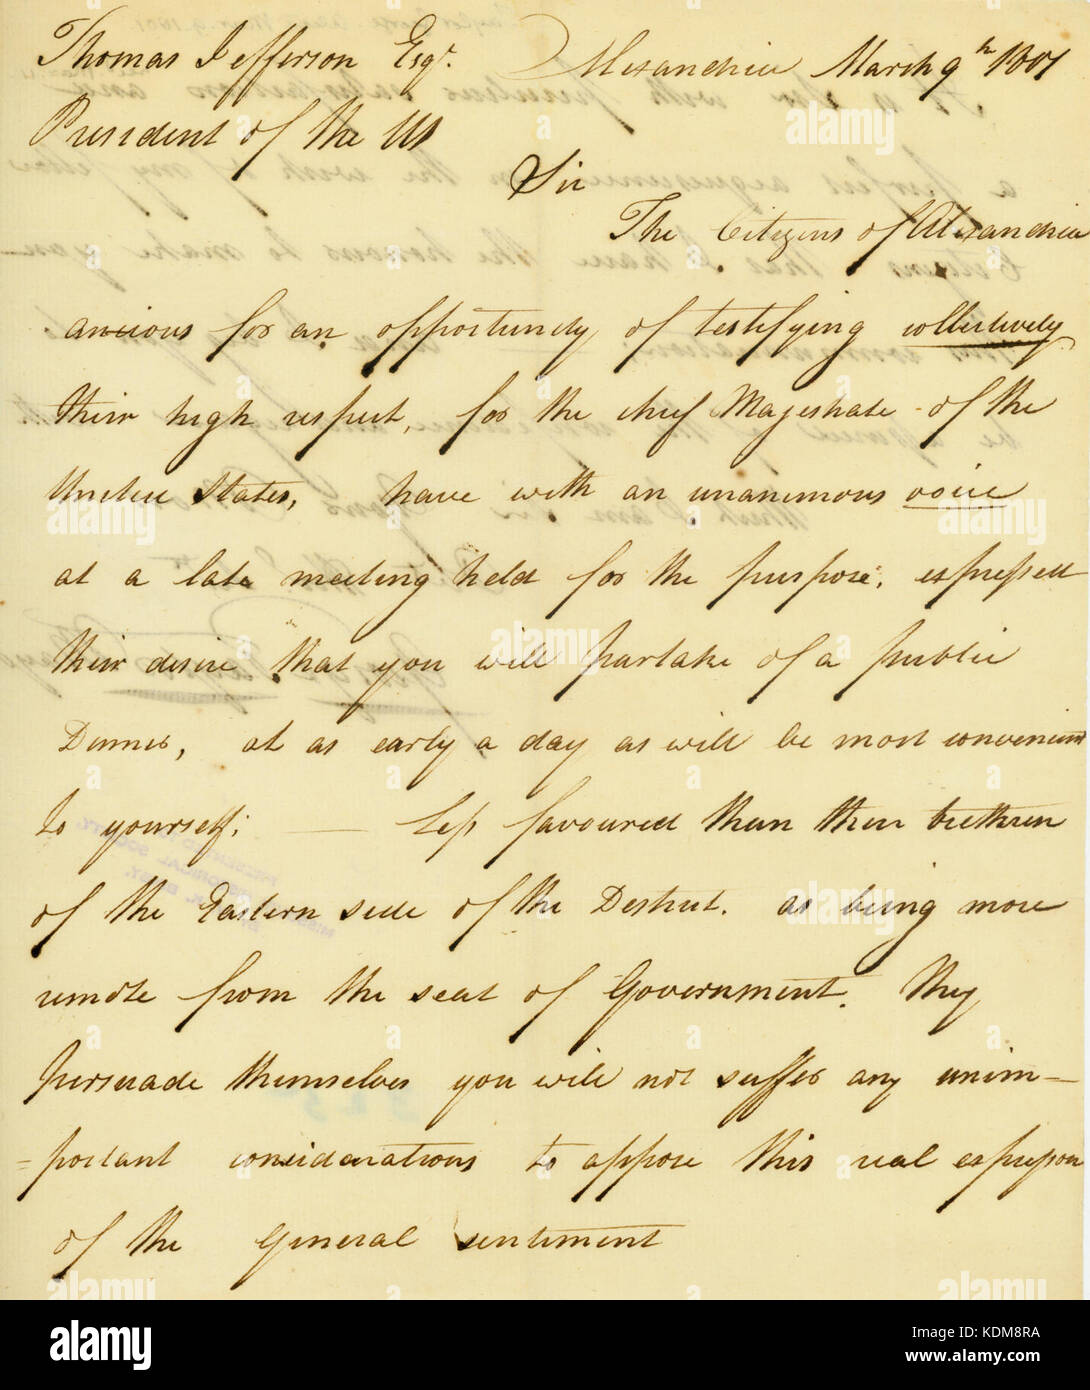 Thomas Jefferson Esqr. Alexandria March 9th 1801
President of the US
Sir
The Citizens of Alexandria
anxious for an opportunity of testifying collectively
their high respect, for the chief Magestrate of the
United States, have with an unanimous voice
at a late meeting held for the purpose, expressed
their desire that you will partake of a public
Dinner, at as early a day as will be most convenient
to yourself; — Less favoured than their brethren
of the Eastern side of the District. as being more
remote from the seat of Government. They
persuade themselves you will not suffer any unim-
=portant considerations to oppose this real expression
of the general sentiment
alamy
Image ID: KDM8RA
www.alamy.com